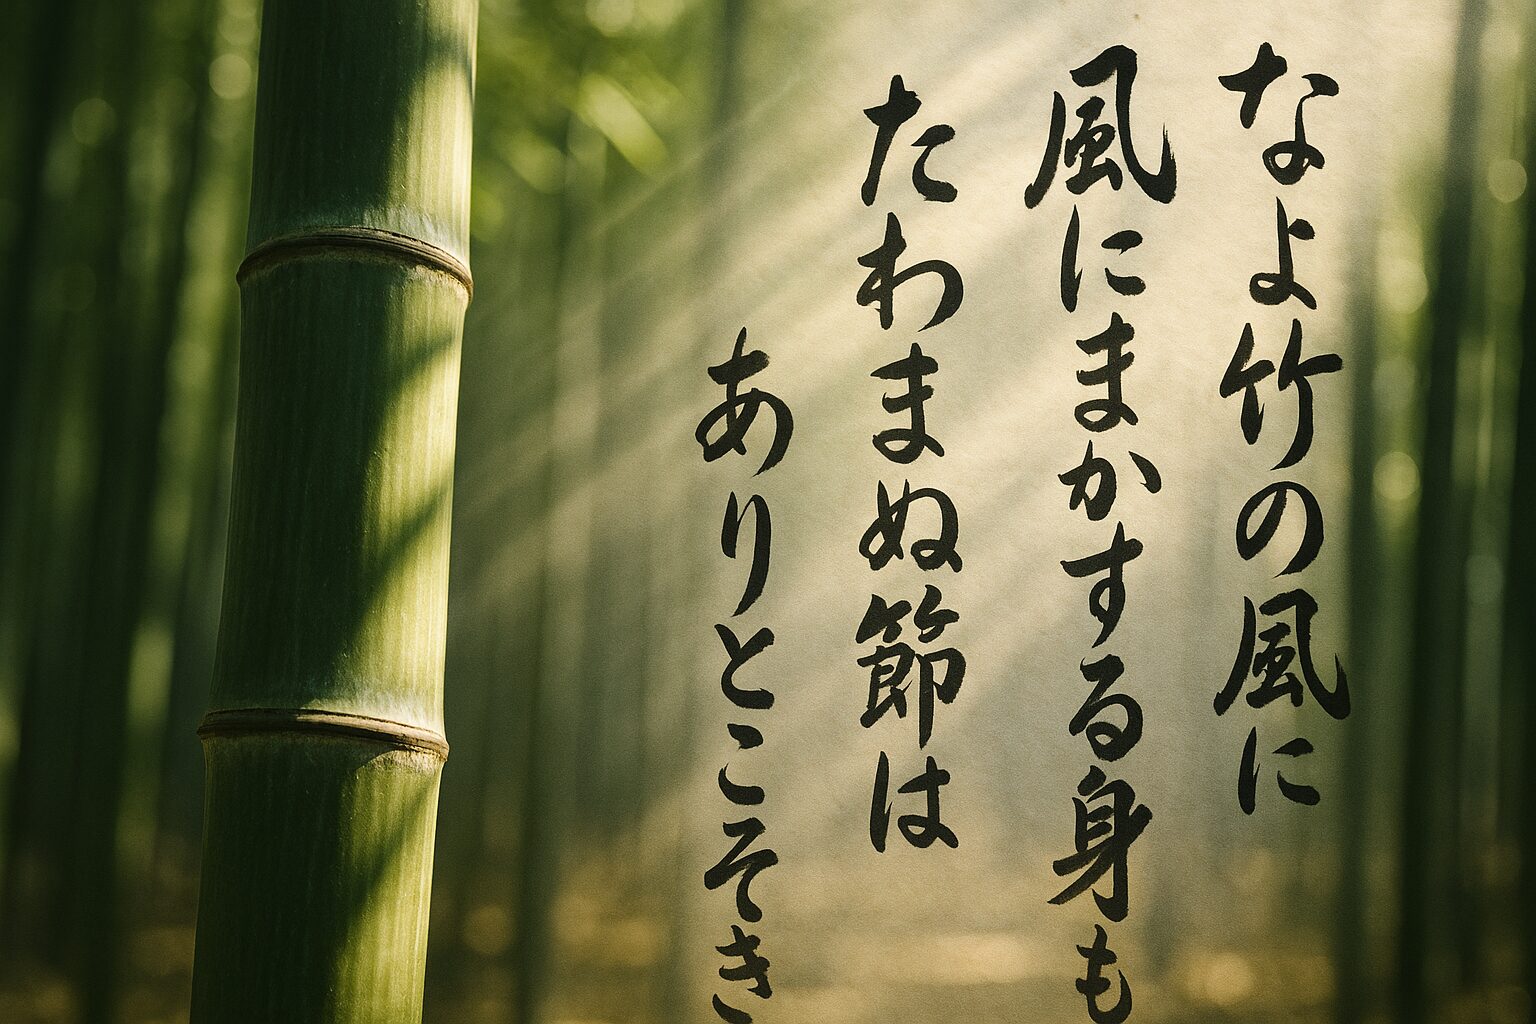 なよ竹の風に
風にまかする身も
たわまぬ節は
ありとこそき